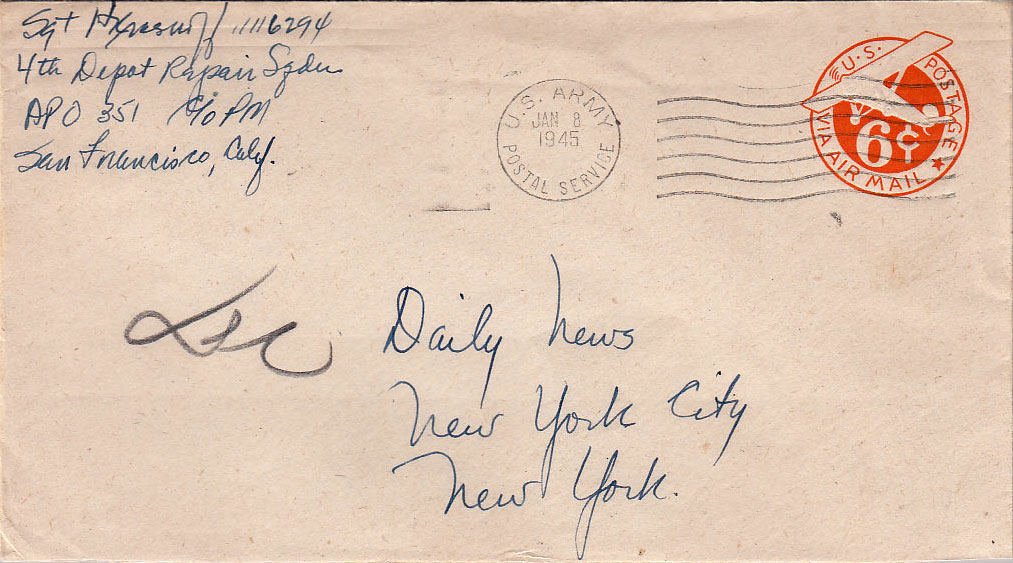 Sgt 11116294
4th Depot Repair Sqdn
APO 351 C/o PM
San Francisco, Calif.
U.S. ARMY
JAN 8
1945
POSTAL SERVICE
U.S. POSTAGE
6¢
VIA AIR MAIL
Daily News
New York City
New York.